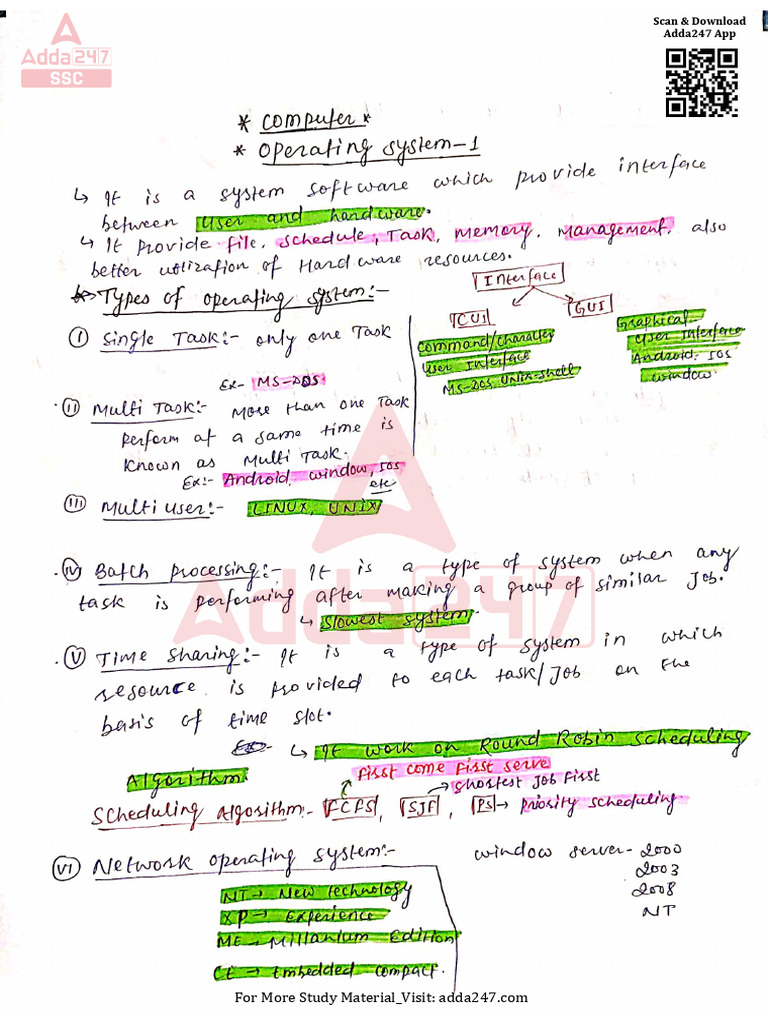 Scan & Download
Adda247 App
Adda247
SSC
* Computer *
* Operating System-1
↳ It is a system software which provide interface
between user and hardware.
↳ It provide file, schedule, Task, memory, management, also
better utilization of Hardware resources.
Interface
CUI
GUI
Command/Character
User Interface
MS-DOS UNIX-shell
Graphical
User Interface
Android, IOS
window.
Types of operating system:-
(I) Single Task:- only one Task
Ex- MS-DOS.
(II) Multi Task:- More than one Task
perform at a same time is
known as Multi Task.
Ex:- Android, window, IOS
etc
(III) Multi user:- LINUX, UNIX
Adda247
(IV) Batch processing:- It is a type of system when any
task is performing after making a group of similar Job.
↳ Slowest system
(V) Time sharing:- It is a type of system in which
resource is provided to each task/Job on the
basis of time slot.
↳ It work on Round Robin scheduling
Algorithm
first come first serve
→ Shortest Job first
Scheduling Algorithm:- FCFS, SJF, PS → priority scheduling
(VI) Network operating system:-
NT → New technology
XP → Experience
ME → Millanium Edition
CE → Embedded compact.
window server - 2000
2003
2008
NT
For More Study Material_Visit: adda247.com